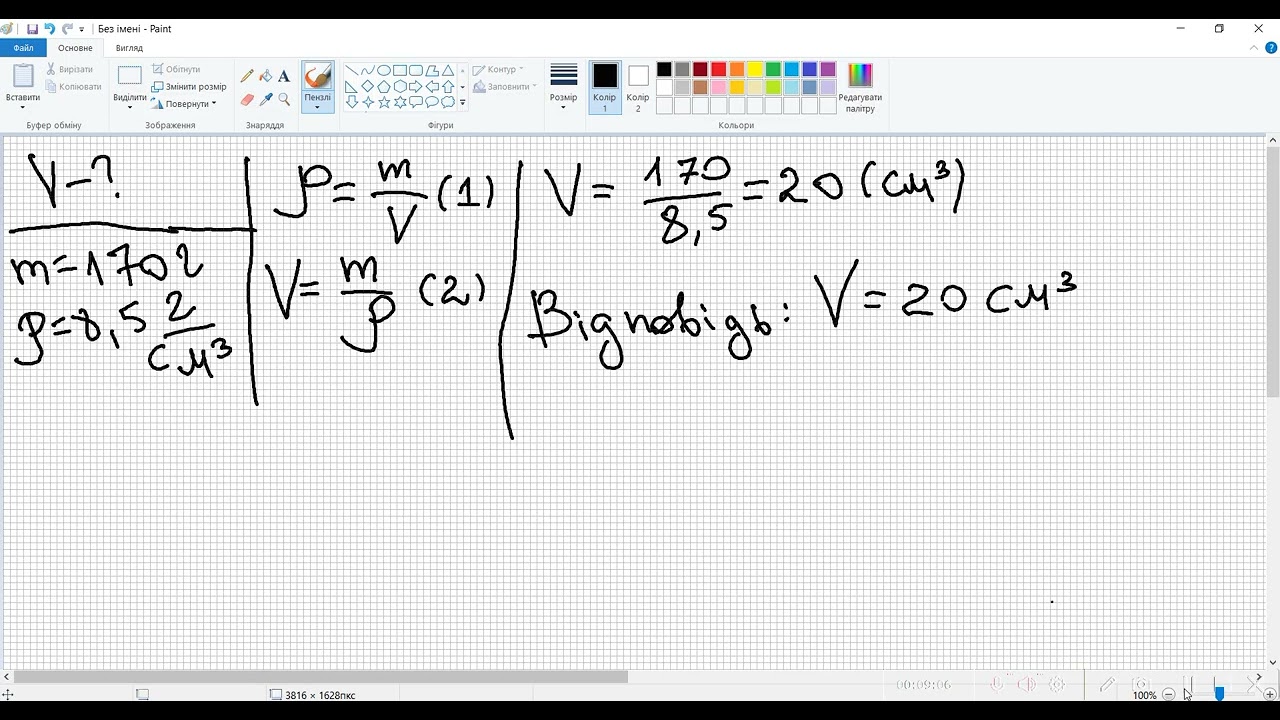 Без імені - Paint
Файл Основне Вигляд
Вставити
Вирізати
Копіювати
Буфер обміну
Виділити
Обітнути
Змінити розмір
Повернути
Зображення
A
Знаряддя
Пензлі
Контур
Заповнити
Фігури
Розмір
Колір 1
Колір 2
Редагувати палітру
Кольори
V-?
m=170г
ρ=8,5 г/см³
ρ= m/V (1)
V= m/ρ (2)
V= 170/8,5 =20 (см³)
Відповідь: V=20 см³
3816 × 1628пкс
00:09:06
100%